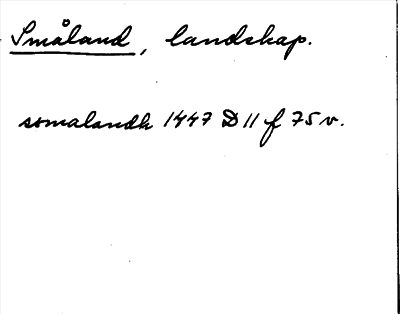 Småland, landskap.
somalandh 1447 D 11 f 75 v.